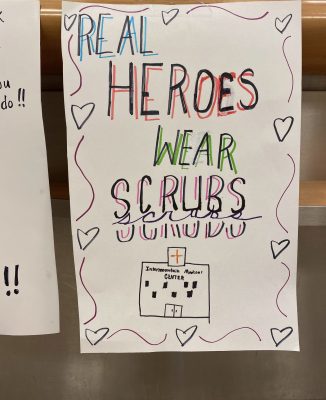 do !!
!!
REAL
HEROES
WEAR
SCRUBS
scrubs
Intermountain Medical
CENTER